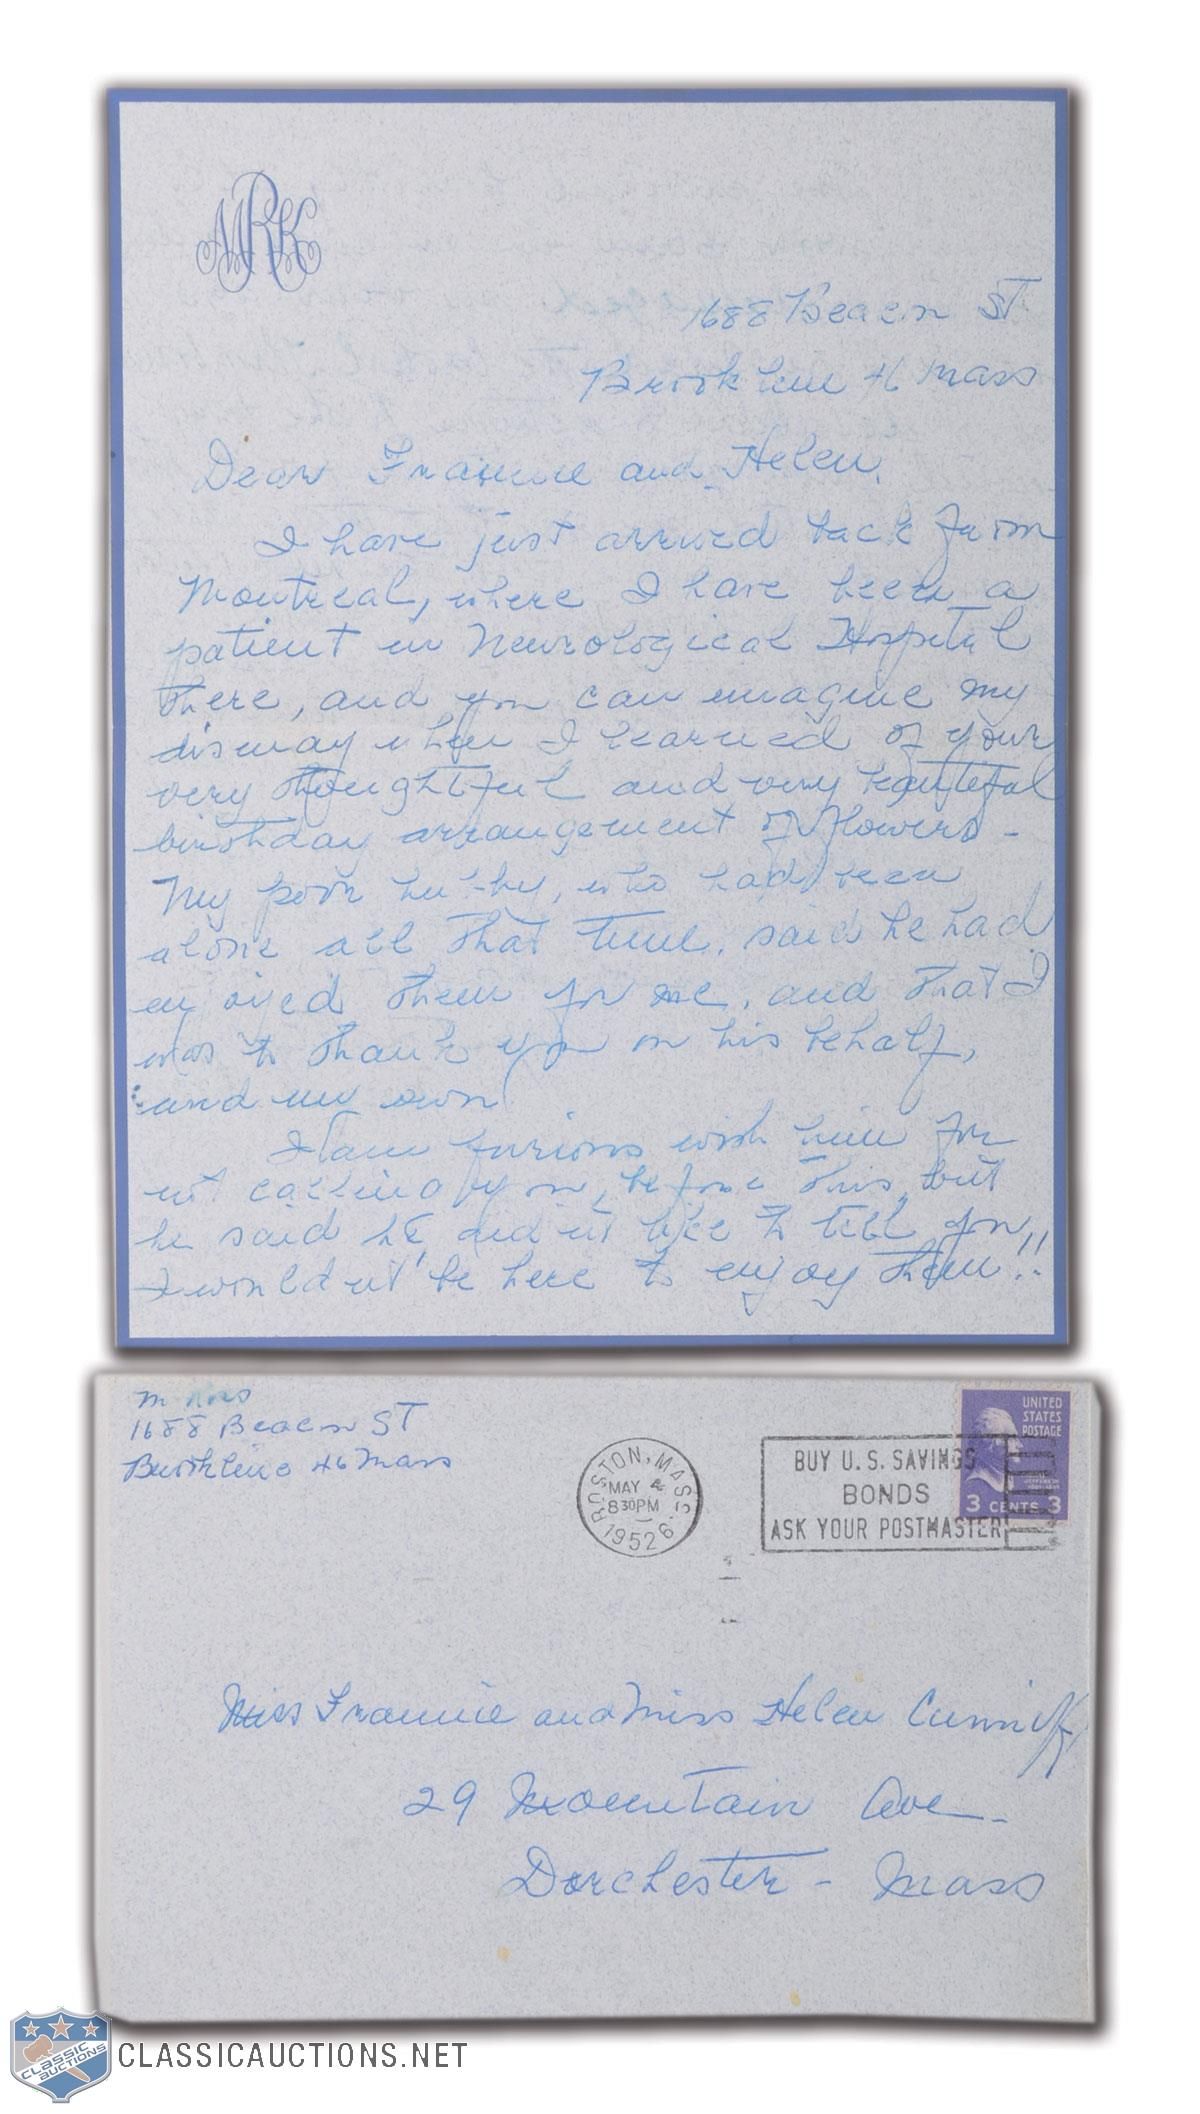 MRK
1688 Beacon ST
Brookline 46 Mass
Dear Frannie and Helen,
I have just arrived back from
Montreal, where I have been a
patient in Neurological Hospital
there, and you can imagine my
dismay when I learned of your
very thoughtful and very beautiful
birthday arrangement of flowers -
My poor hubby, who had been
alone all that time, said he had
enjoyed them for me, and that I
was to thank you on his behalf,
and my own
I am furious with him for
not calling you, before this, but
he said he didn't like to tell you
I wouldn't be here to enjoy them!!
M Ross
1688 Beacon ST
Brookline 46 Mass
BOSTON, MASS
MAY 4
8 30 PM
1952
6
BUY U.S. SAVINGS
BONDS
ASK YOUR POSTMASTER
UNITED
STATES
POSTAGE
3 CENTS 3
Miss Frannie and Miss Helen Cunniff
29 Mountain Ave -
Dorchester - Mass
CLASSIC
AUCTIONS
CLASSICAUCTIONS.NET